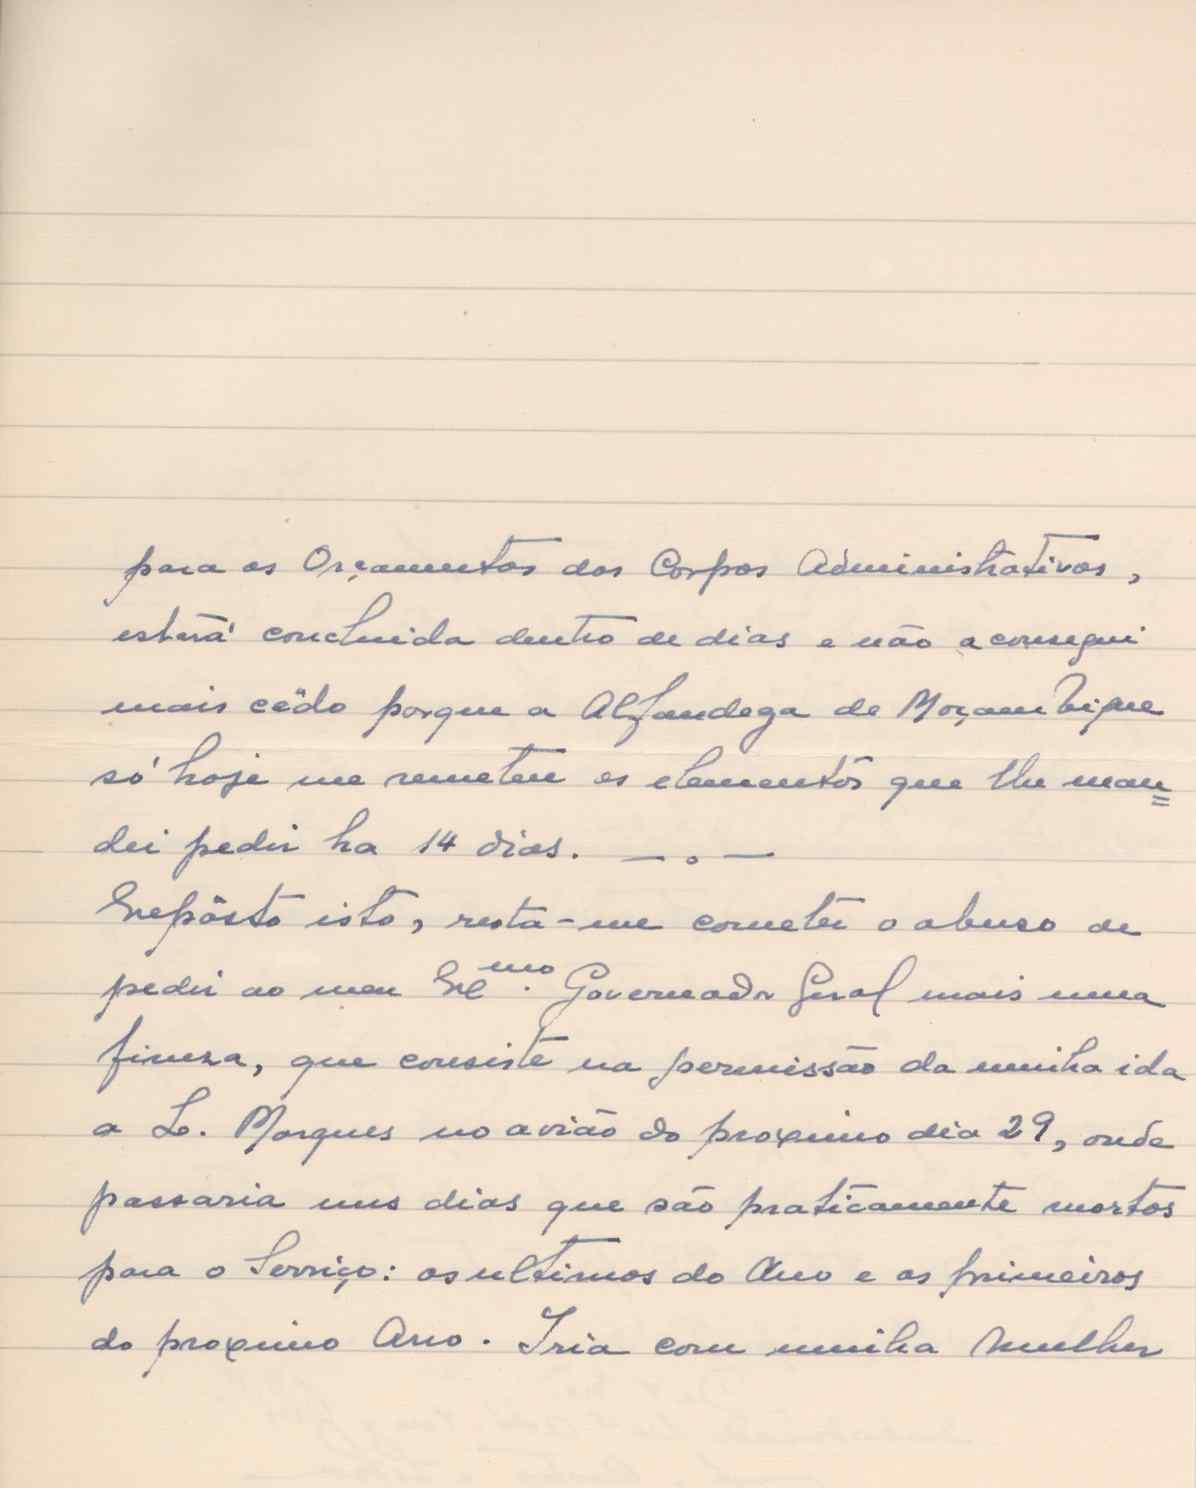 para os Orçamentos dos Corpos Administrativos,
estará concluida dentro de dias e não a consegui
mais cêdo porque a Alfandega de Moçambique
só hoje me remeteu os elementos que lhe man=
dei pedir ha 14 dias. — . —
Expôsto isto, resta-me cometer o abuso de
pedir ao meu Exmo. Governador Geral mais uma
fineza, que consiste na permissão da minha ida
a L. Marques no avião do proximo dia 29, onde
passaria uns dias que são praticamente mortos
para o Serviço: os ultimos do Ano e os primeiros
do proximo Ano. Iria com minha Mulher